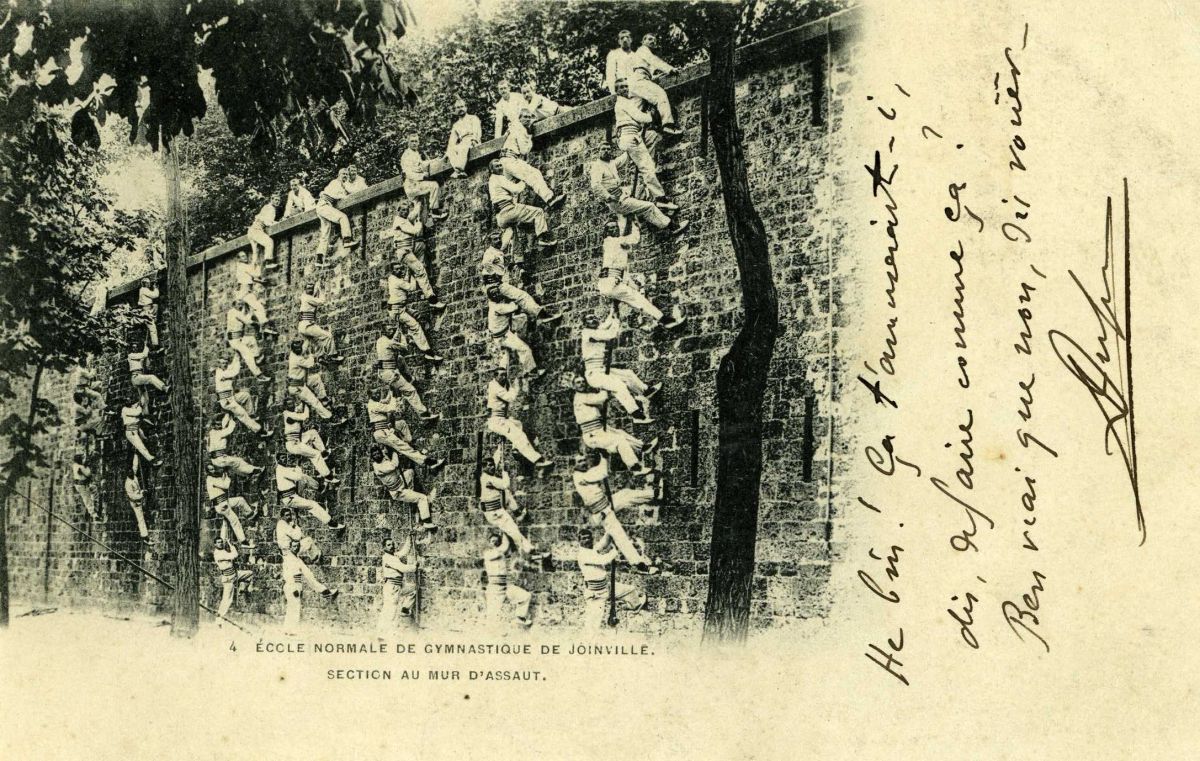 4 ÉCOLE NORMALE DE GYMNASTIQUE DE JOINVILLE.
SECTION AU MUR D'ASSAUT.
He bin! Ça t'amuserait-i,
dis, de faire comme ça?
Ben vrai que non, dis